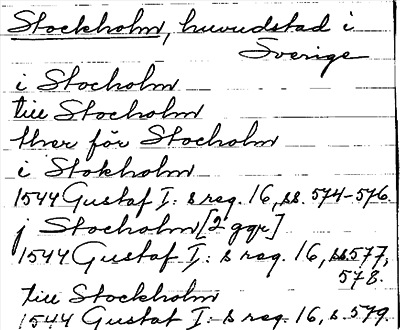 Stockholm, huvudstad i
Sverige
i Stocholm
till Stocholm
ther för Stocholm
i Stokholm
1544 Gustaf I:s reg. 16, ss. 574-576.
j Stocholm [2 ggr]
1544 Gustaf I:s reg. 16, ss 577,
578.
till Stockholm
1544 Gustaf I:s reg. 16, s. 579.